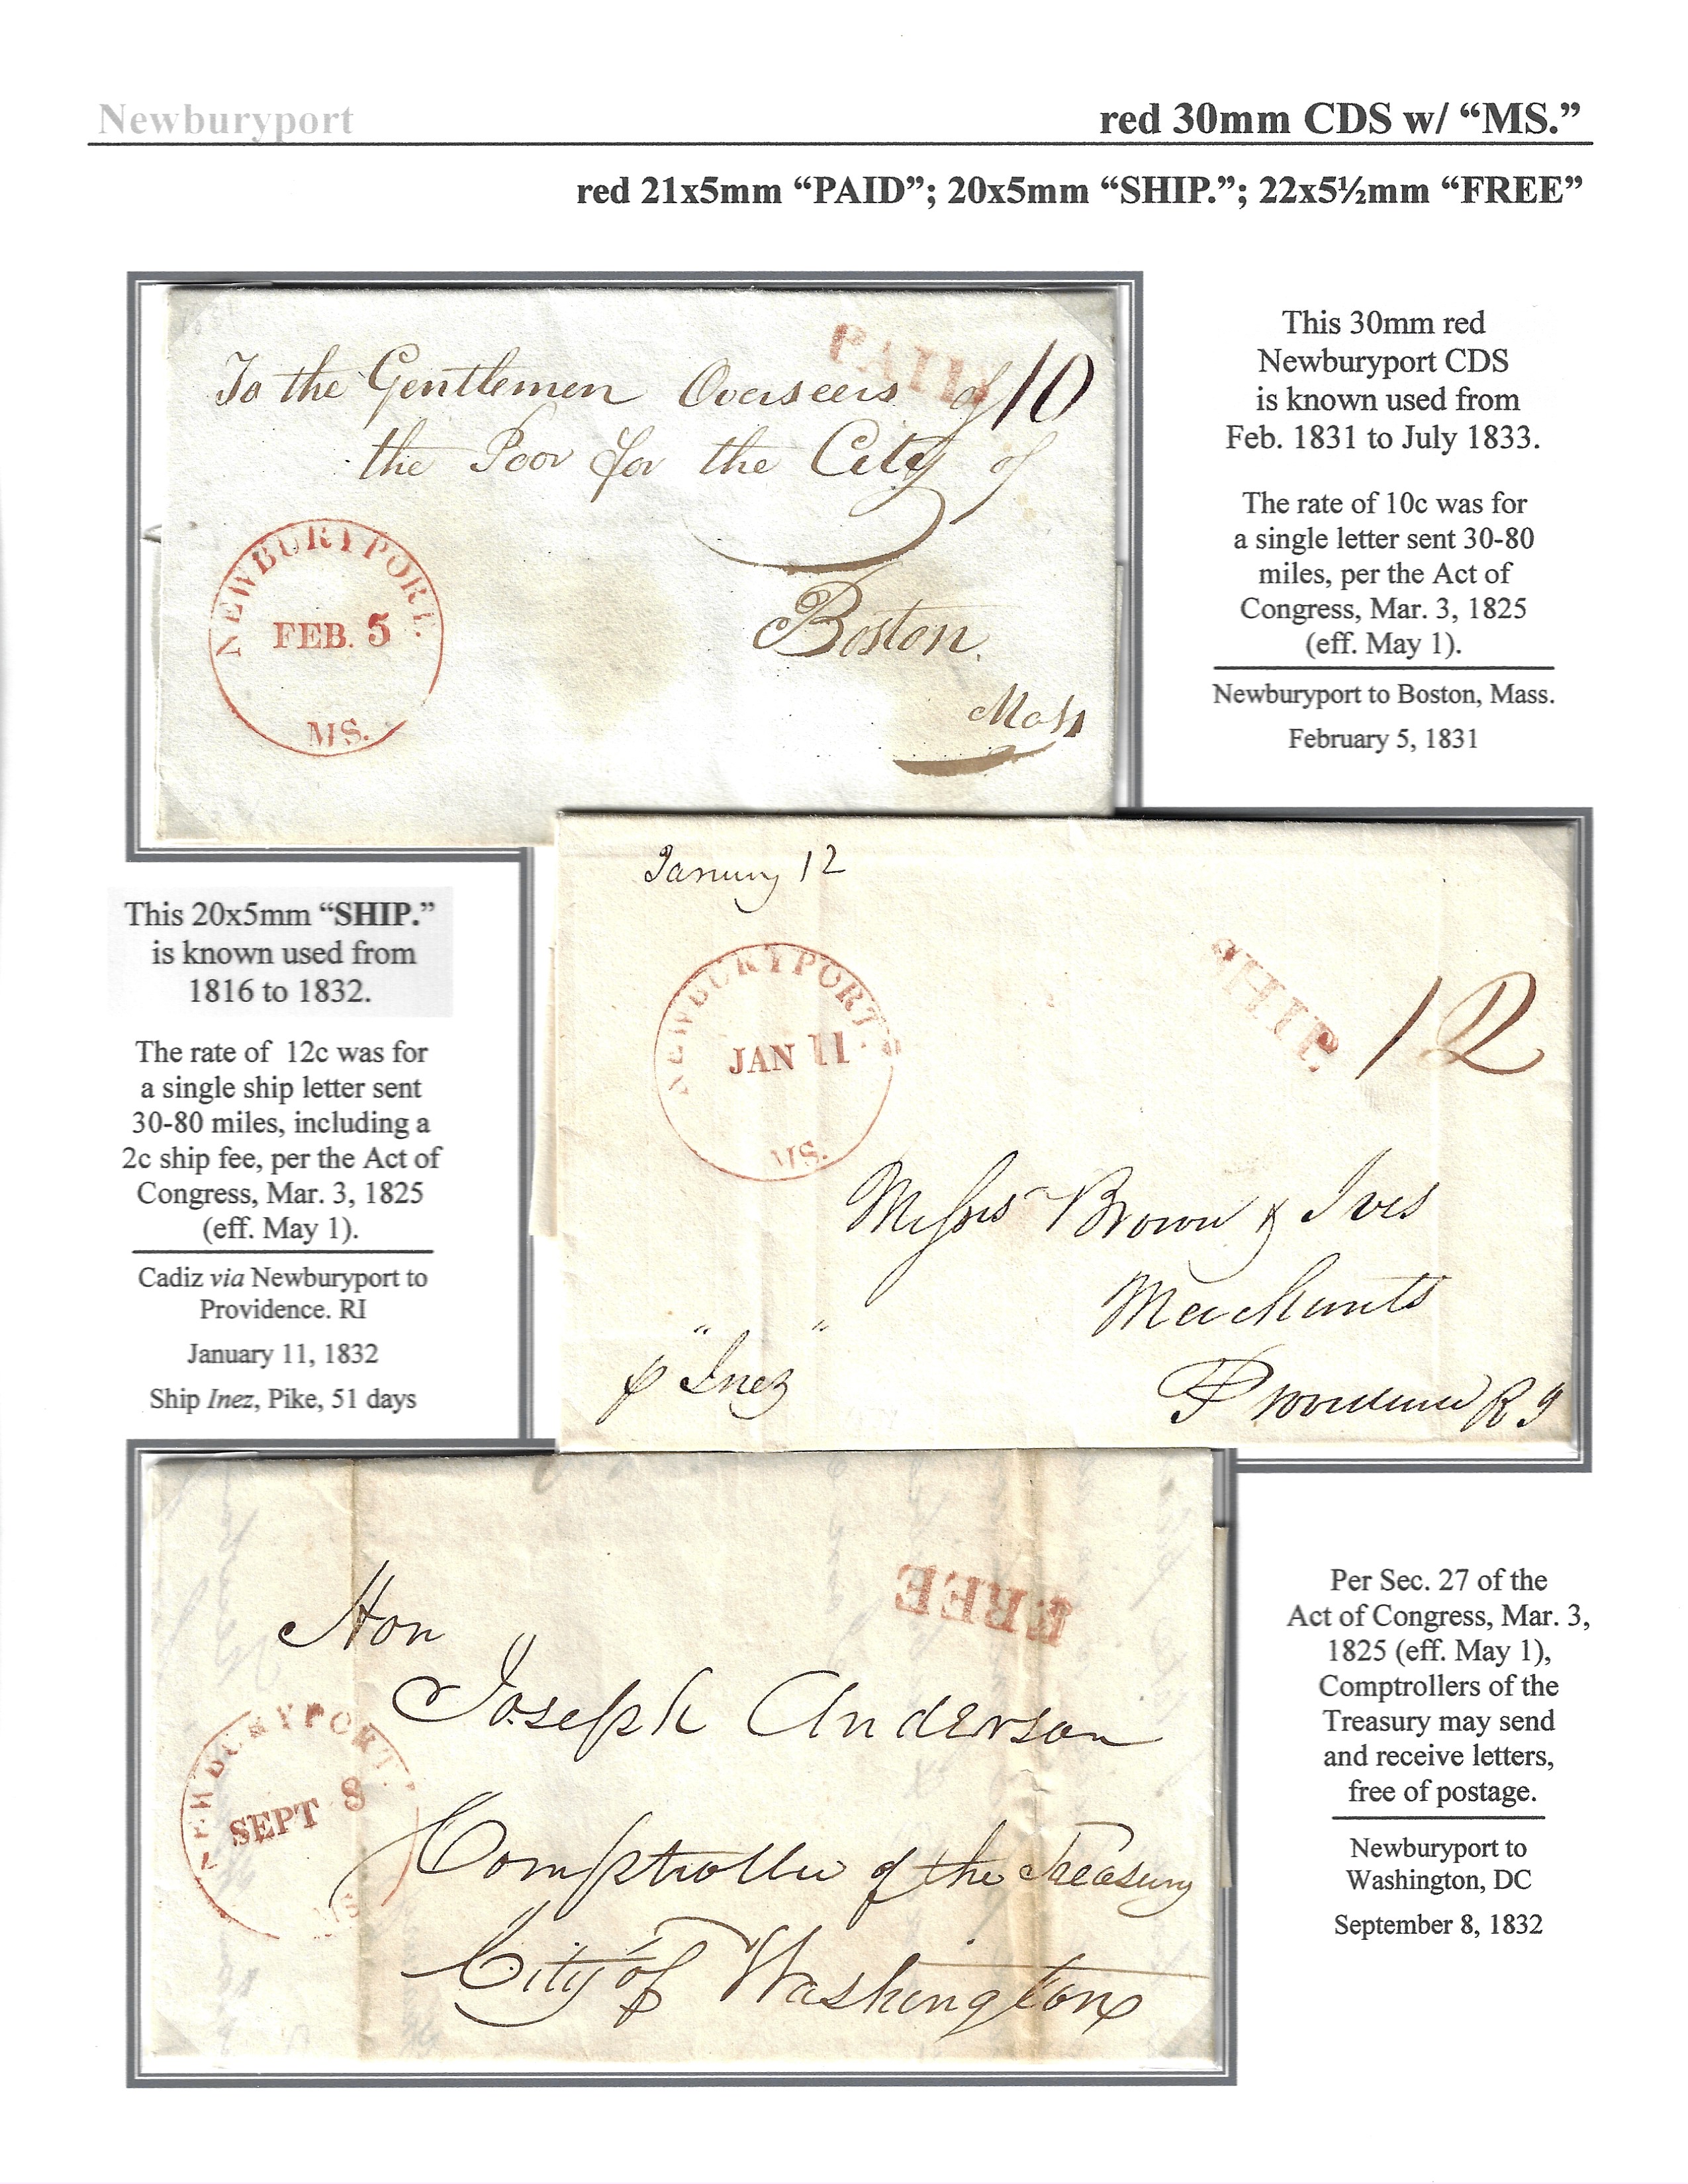 Newburyport
red 30mm CDS w/ “MS.”
red 21x5mm “PAID”; 20x5mm “SHIP.”; 22x5½mm “FREE”
PAID
To the Gentlemen Overseers of 10
the Poor for the City of
Boston.
Mass
NEWBURYPORT.
FEB. 5
MS.
This 30mm red
Newburyport CDS
is known used from
Feb. 1831 to July 1833.
The rate of 10c was for
a single letter sent 30-80
miles, per the Act of
Congress, Mar. 3, 1825
(eff. May 1).
Newburyport to Boston, Mass.
February 5, 1831
This 20x5mm “SHIP.”
is known used from
1816 to 1832.
The rate of 12c was for
a single ship letter sent
30-80 miles, including a
2c ship fee, per the Act of
Congress, Mar. 3, 1825
(eff. May 1).
Cadiz via Newburyport to
Providence. RI
January 11, 1832
Ship Inez, Pike, 51 days
January 12
NEWBURYPORT.
JAN 11
MS.
SHIP.
12
Messrs Brown & Ives
Merchants
Providence R I
p "Inez"
FREE
Hon
Joseph Anderson
Comptroller of the Treasury
City of Washington
NEWBURYPORT.
SEPT 8
MS
Per Sec. 27 of the
Act of Congress, Mar. 3,
1825 (eff. May 1),
Comptrollers of the
Treasury may send
and receive letters,
free of postage.
Newburyport to
Washington, DC
September 8, 1832